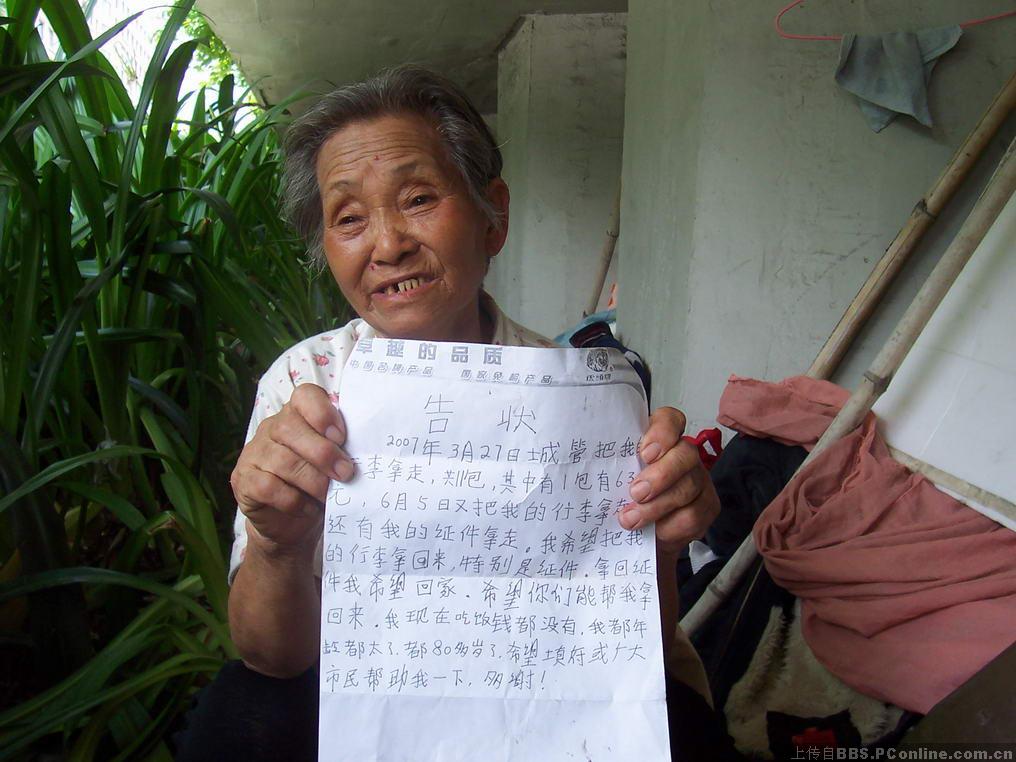 卓越的品质
中国名牌产品 国家免检产品
告状
2007年3月27日城管把我的
行李拿走,共11包,其中有1包有63
元 6月5日又把我的行李拿走
还有我的证件拿走。我希望把我
的行李拿回来,特别是证件.拿回证
件我希望回家.希望你们能帮我拿
回来.我现在吃饭钱都没有,我都年
龄都太了.都80多岁了.希望填府或广大
市民帮助我一下,多谢!
上传自BBS.PConline.com.cn